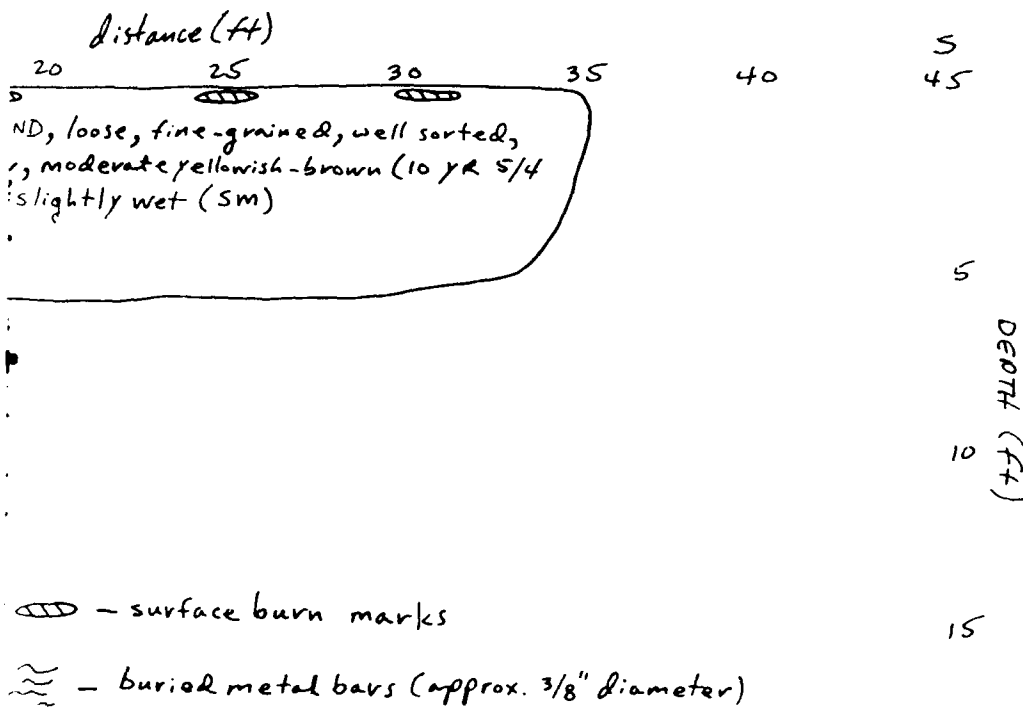 distance (ft)
S
20 25 30 35 40 45
ND, loose, fine-grained, well sorted,
, moderate yellowish-brown (10 YR 5/4
slightly wet (Sm)
5
DEPTH (ft)
10
– surface burn marks
15
– buried metal bars (approx. 3/8" diameter)